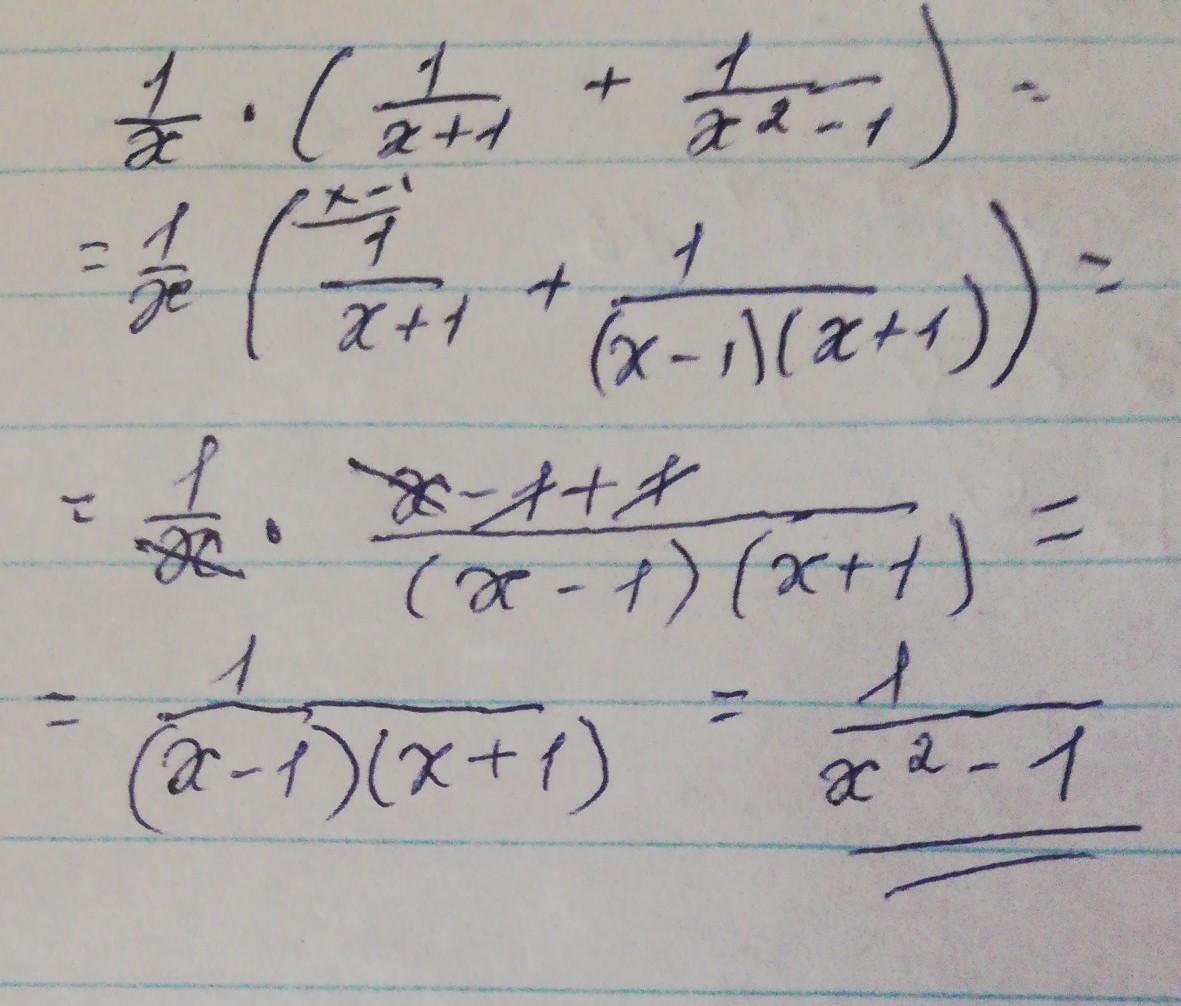 1/x · ( 1/(x+1) + 1/(x² - 1) ) =
= 1/x ( x-1 1/(x+1) + 1/((x-1)(x+1)) ) =
= 1/x · (x - 1 + 1)/((x - 1)(x+1)) =
= 1/((x-1)(x+1)) = 1/(x² - 1)